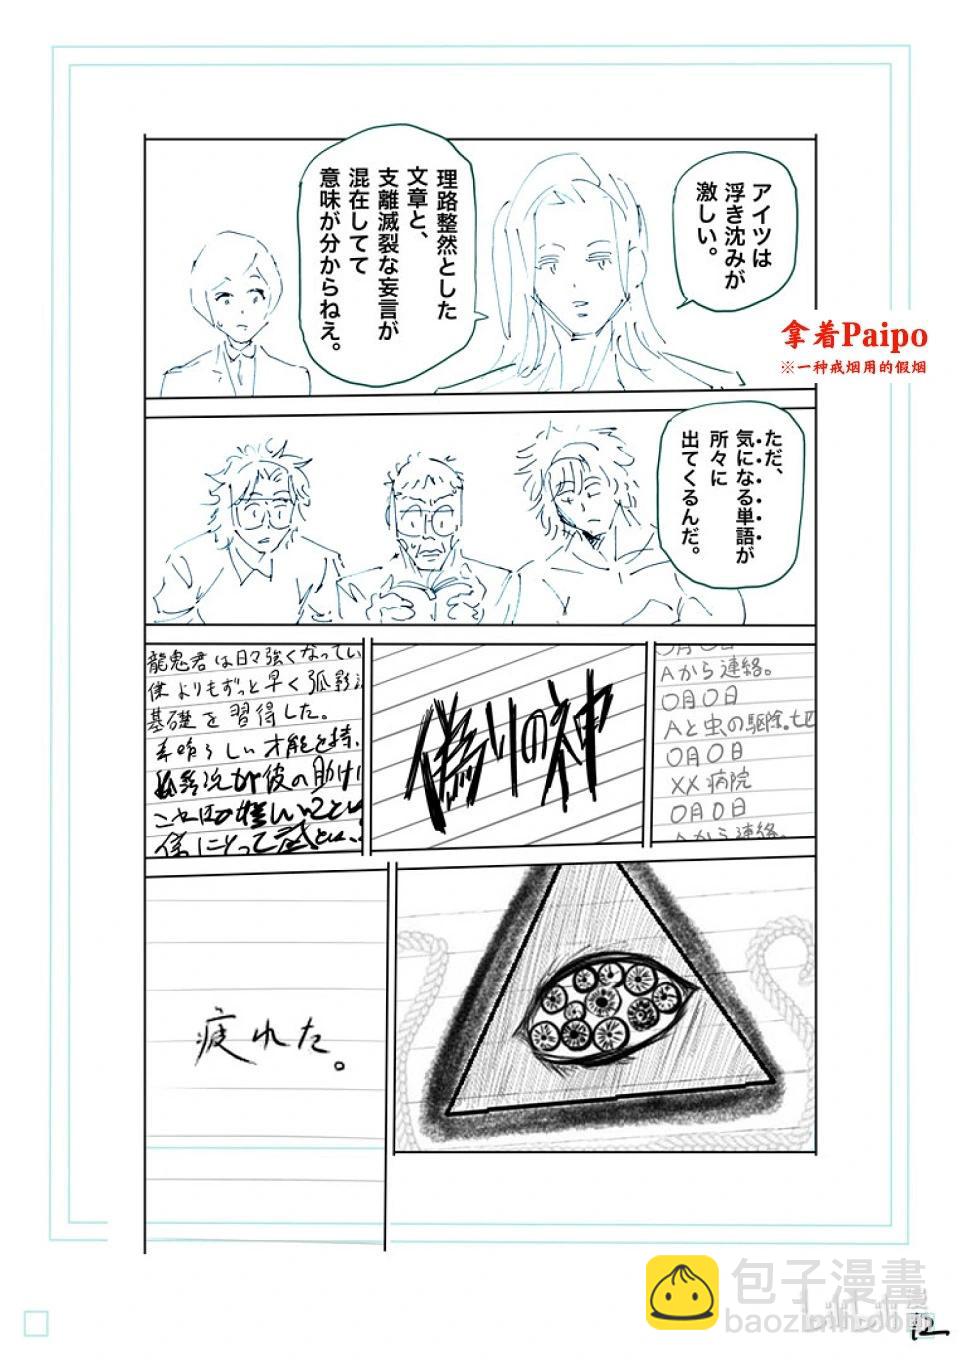 アイツは
浮き沈みが
激しい。
理路整然とした
文章と、
支離滅裂な妄言が
混在してて
意味が分からねえ。
拿着Paipo
※一种戒烟用的假烟
ただ、
気になる単語が
所々に
出てくるんだ。
〇月〇日
Aから連絡。
〇月〇日
Aと虫の駆除。
〇月〇日
XX病院
〇月〇日
Aから連絡。
偽りの神
龍鬼君は日々強くなってい
僕よりもずっと早く弧影
基礎を習得した。
素晴らしい才能を持
疲れた。
包子漫畫
baozimh.com
12